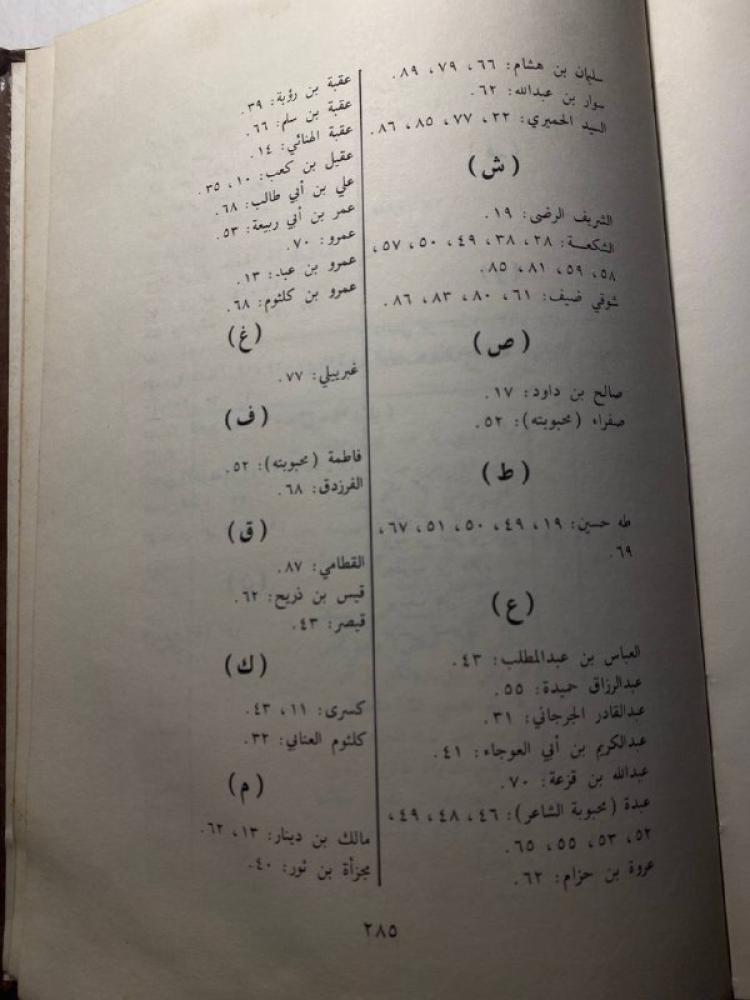 سليمان بن هشام: ٦٦، ٧٩، ٨٩.
سوار بن عبدالله: ٦٢.
السيد الحميري: ٢٢، ٧٧، ٨٥، ٨٦.
(ش)
الشريف الرضى: ١٩.
الشكعة: ٢٨، ٣٨، ٤٩، ٥٠، ٥٧،
٥٨، ٥٩، ٨١، ٨٥.
شوقي ضيف: ٦١، ٨٠، ٨٣، ٨٦.
(ص)
صالح بن داود: ١٧.
صفراء (محبوبته): ٥٢.
(ط)
طه حسين: ١٩، ٤٩، ٥٠، ٥١، ٦٧،
٦٩.
(ع)
العباس بن عبدالمطلب: ٤٣.
عبدالرزاق حميدة: ٥٥.
عبدالقادر الجرجاني: ٣١.
عبدالكريم بن أبي العوجاء: ٤١.
عبدالله بن قزعة: ٧٠.
عبدة (محبوبة الشاعر): ٤٦، ٤٨، ٤٩،
٥٢، ٥٣، ٥٥، ٦٥.
عروة بن حزام: ٦٢.
عقبة بن رؤبة: ٣٩.
عقبة بن سلم: ٦٦.
عقبة الهنائي: ١٤.
عقيل بن كعب: ١٠، ٣٥.
علي بن أبي طالب: ٦٨.
عمر بن أبي ربيعة: ٥٣.
عمرو: ٧٠.
عمرو بن عبد: ١٣.
عمرو بن كلثوم: ٦٨.
(غ)
غبرييلي: ٧٧.
(ف)
فاطمة (محبوبته): ٥٢.
الفرزدق: ٦٨.
(ق)
القطامي: ٨٧.
قيس بن ذريح: ٦٢.
قيصر: ٤٣.
(ك)
كسرى: ١١، ٤٣.
كلثوم العتابي: ٣٢.
(م)
مالك بن دينار: ١٣، ٦٢.
مجزأة بن ثور: ٤٠.
٢٨٥